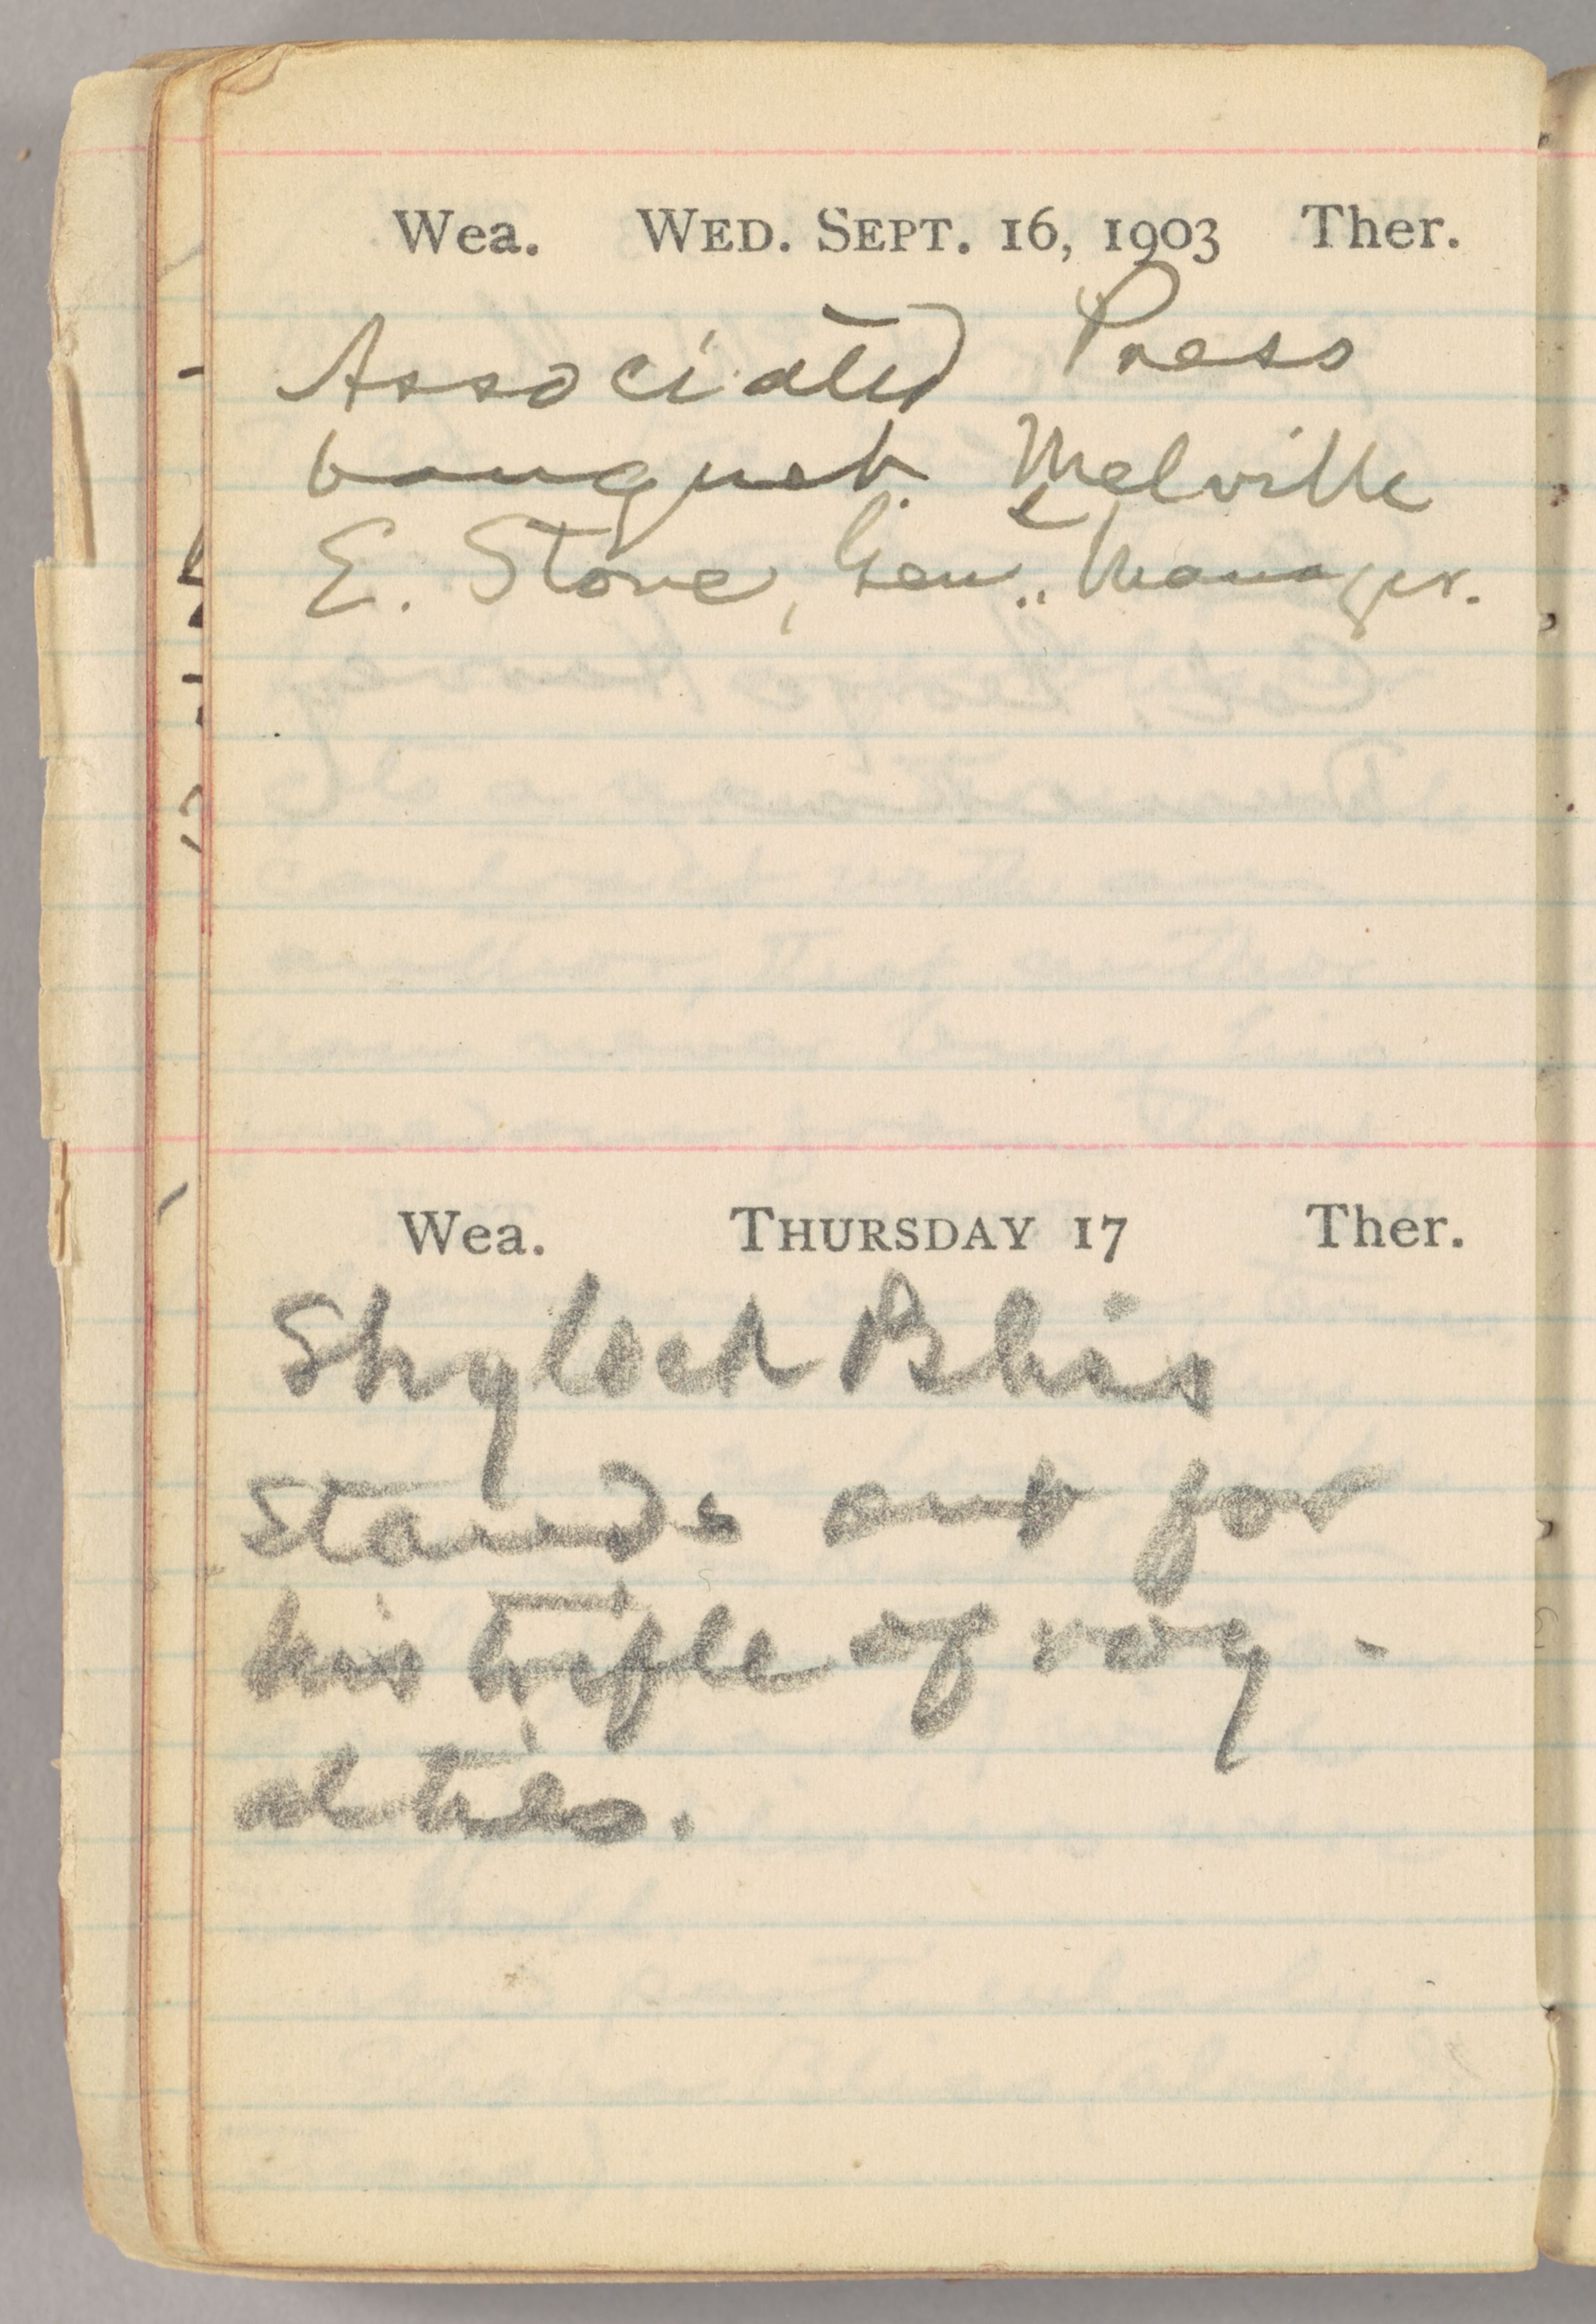 Wea. WED. SEPT. 16, 1903 Ther.
Associated Press
banquet. Melville
E. Stone, Gen.. Manager.
Wea. THURSDAY 17 Ther.
Shylock Bliss
stands out for
his trifle of roy-
alties.